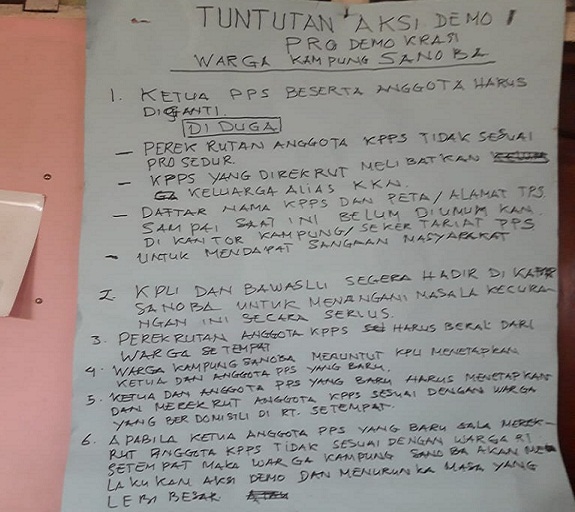 TUNTUTAN AKSI DEMO
PRO DEMOKRASI
WARGA KAMPUNG SANOBA
1. KETUA PPS BESERTA ANGGOTA HARUS
DIGANTI.
DI DUGA
– PEREKRUTAN ANGGOTA KPPS TIDAK SESUAI
PROSEDUR.
– KPPS YANG DIREKRUT MELIBATKAN
KELUARGA ALIAS KKN.
– DAFTAR NAMA KPPS DAN PETA/ALAMAT TPS
SAMPAI SAAT INI BELUM DIUMUMKAN.
DI KANTOR KAMPUNG/SEKERTARIAT PPS
– UNTUK MENDAPAT SANGAAN MASYARAKAT
2. KPU DAN BAWASLU SEGERA HADIR DI
SANOBA UNTUK MENANGANI MASALA KECURA-
NGAN INI SECARA SERIUS.
3. PEREKRUTAN ANGGOTA KPPS HARUS BERAL DARI
WARGA SETEMPAT
4. WARGA KAMPUNG SANOBA MENUNTUT KPU MENETAPKAN
KETUA DAN ANGGOTA PPS YANG BARU.
5. KETUA DAN ANGGOTA PPS YANG BARU HARUS MENETAPKAN
DAN MEREKRUT ANGGOTA KPPS SESUAI DENGAN WARGA
YANG BERDOMISILI DI RT. SETEMPAT.
6. APABILA KETUA ANGGOTA PPS YANG BARU SALA MEREK-
RUT ANGGOTA KPPS TIDAK SESUAI DENGAN WARGA RT
SETEMPAT MAKA WARGA KAMPUNG SANOBA AKAN ME
LAKUKAN AKSI DEMO DAN MENURUNKA MASA YANG
LEBI BESAR